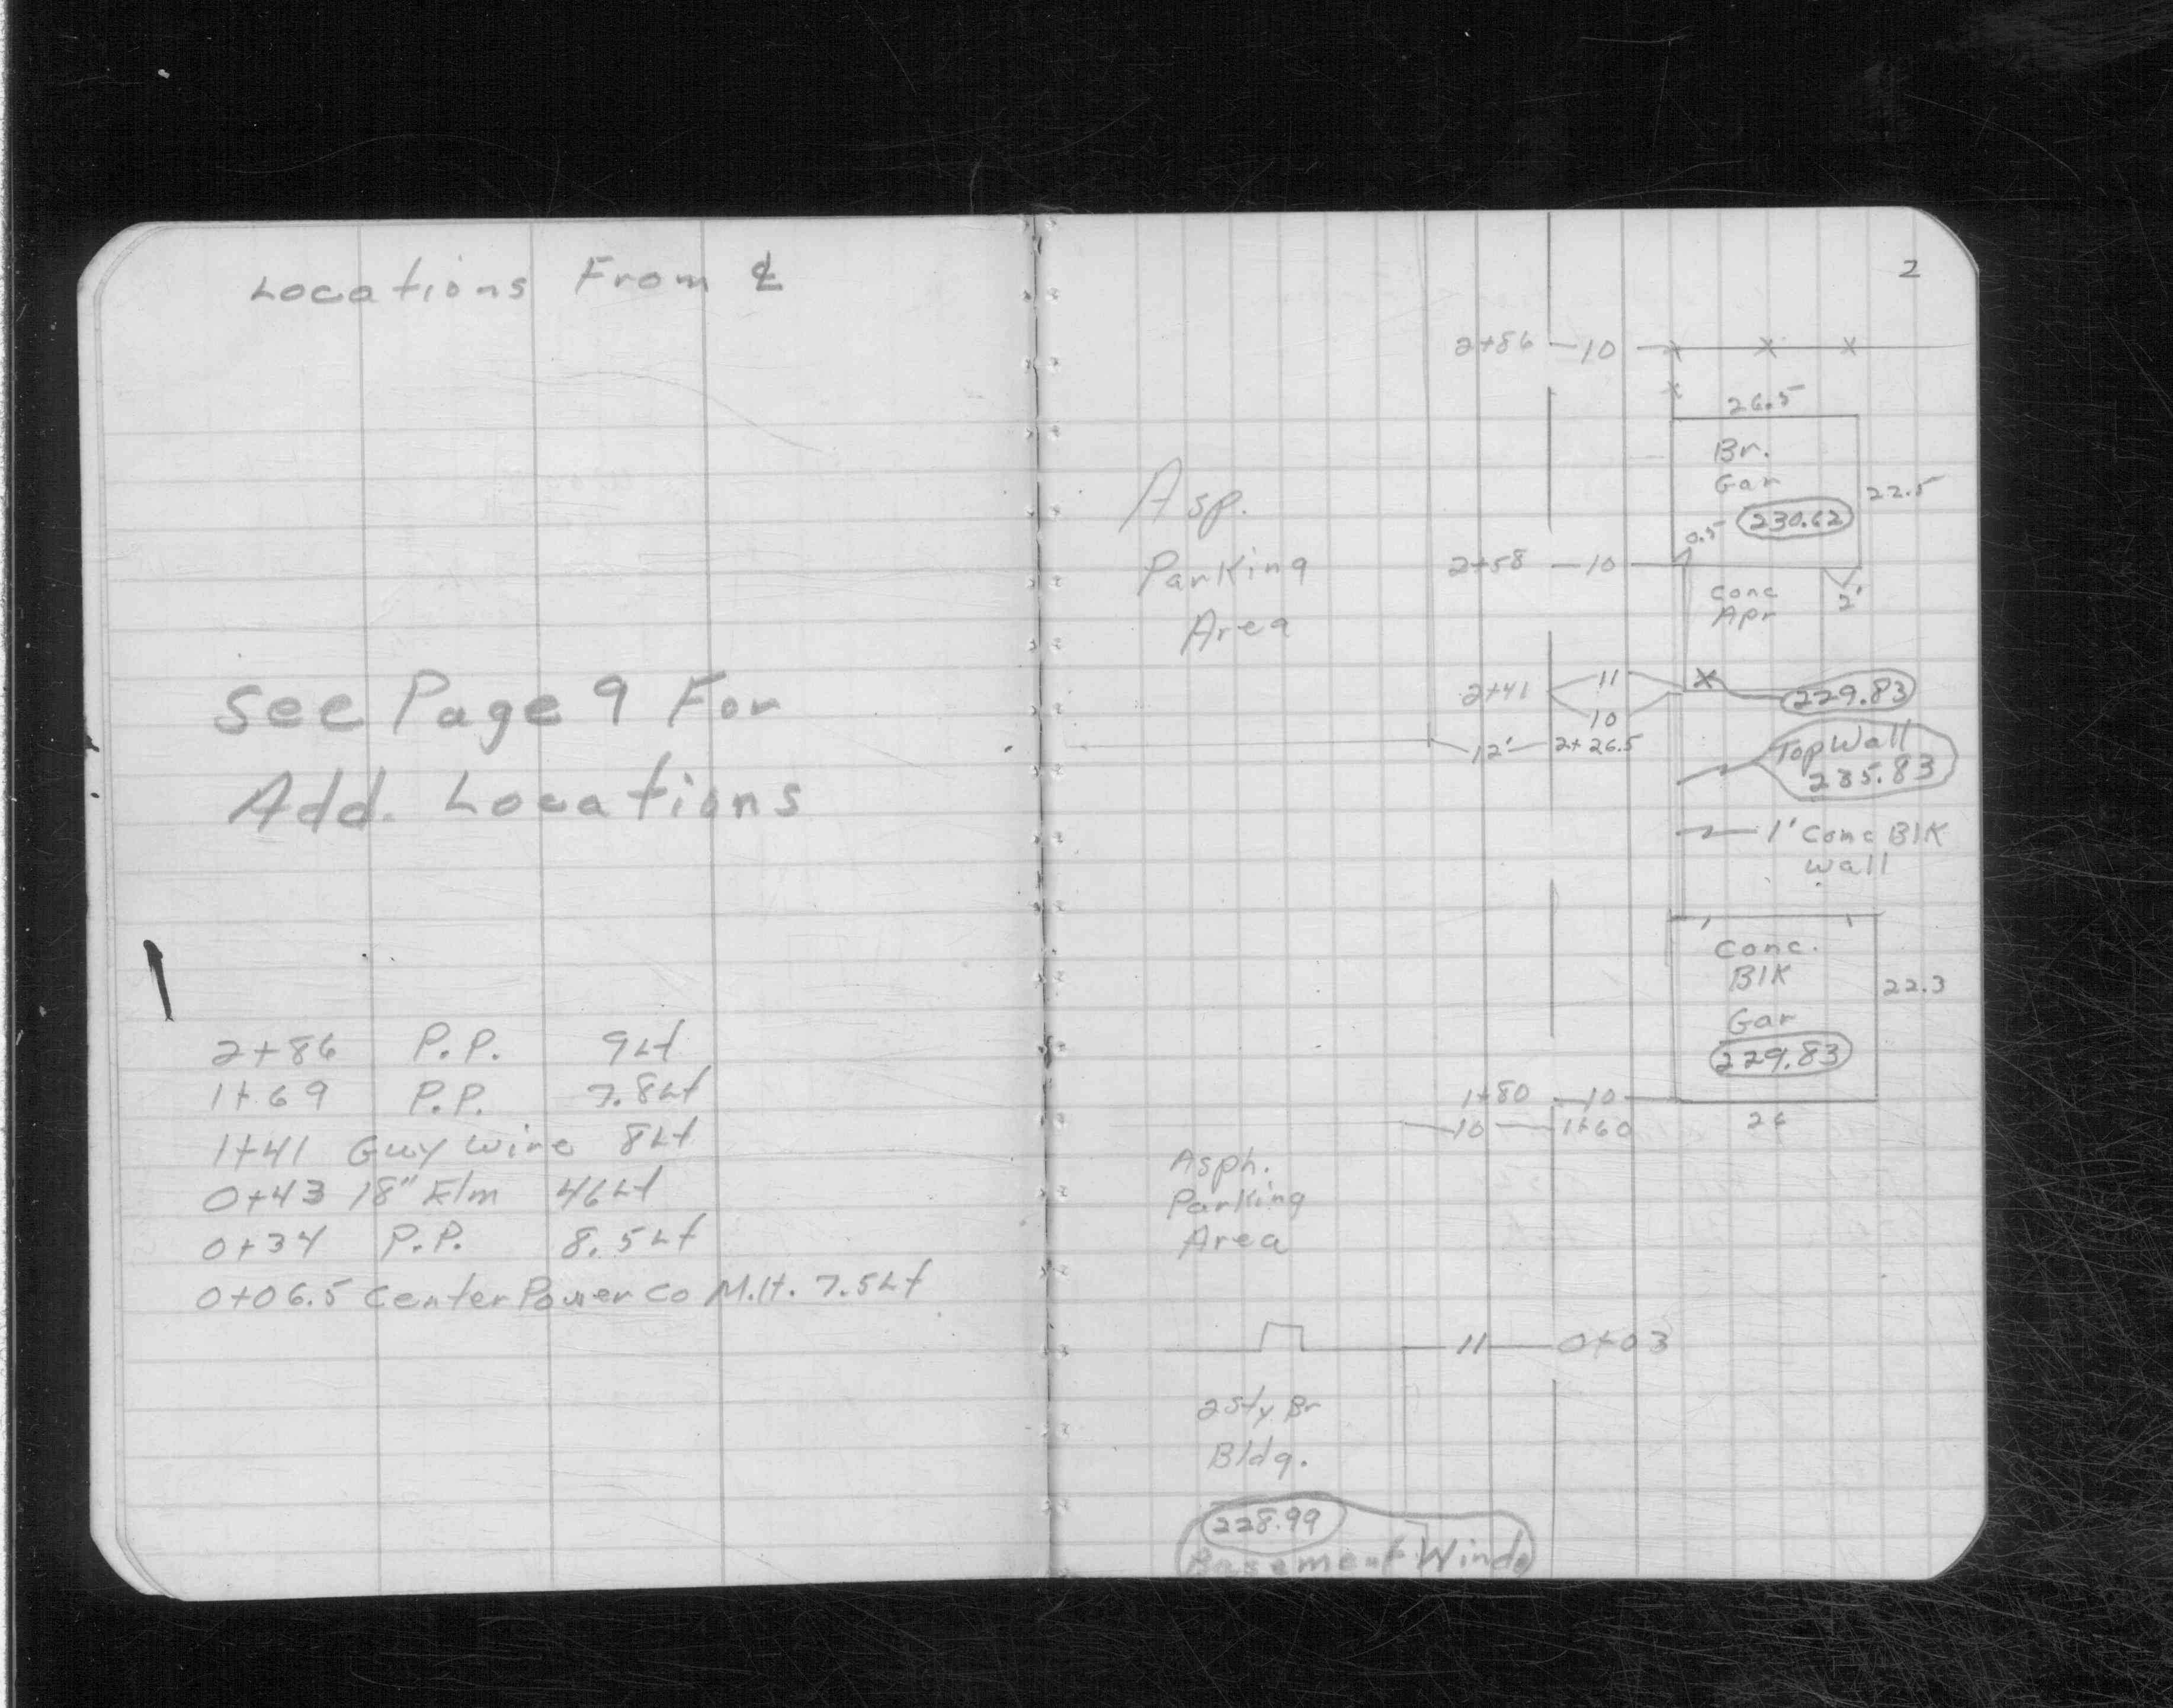 Locations From ℄
See Page 9 For
Add. Locations
2+86 P.P. 9Lt
1+69 P.P. 7.8Lt
1+41 Guy Wire 8Lt
0+43 18" Elm 46Lt
0+34 P.P. 8.5Lt
0+06.5 Center Power Co M.H. 7.5Lt
2
2+86 10
26.5
Br.
Gar
22.5
230.62
0.5
Asp.
Parking
Area
2+58 10
Conc
Apr
2'
2+41 11
10
229.83
12' 2+26.5
Top Wall
235.83
1' Conc Blk
Wall
Conc.
Blk
Gar
22.3
229.83
1+80 10
10 1+60
26
Asph.
Parking
Area
11 0+03
2 Sty Br
Bldg.
228.99
Basement Windo